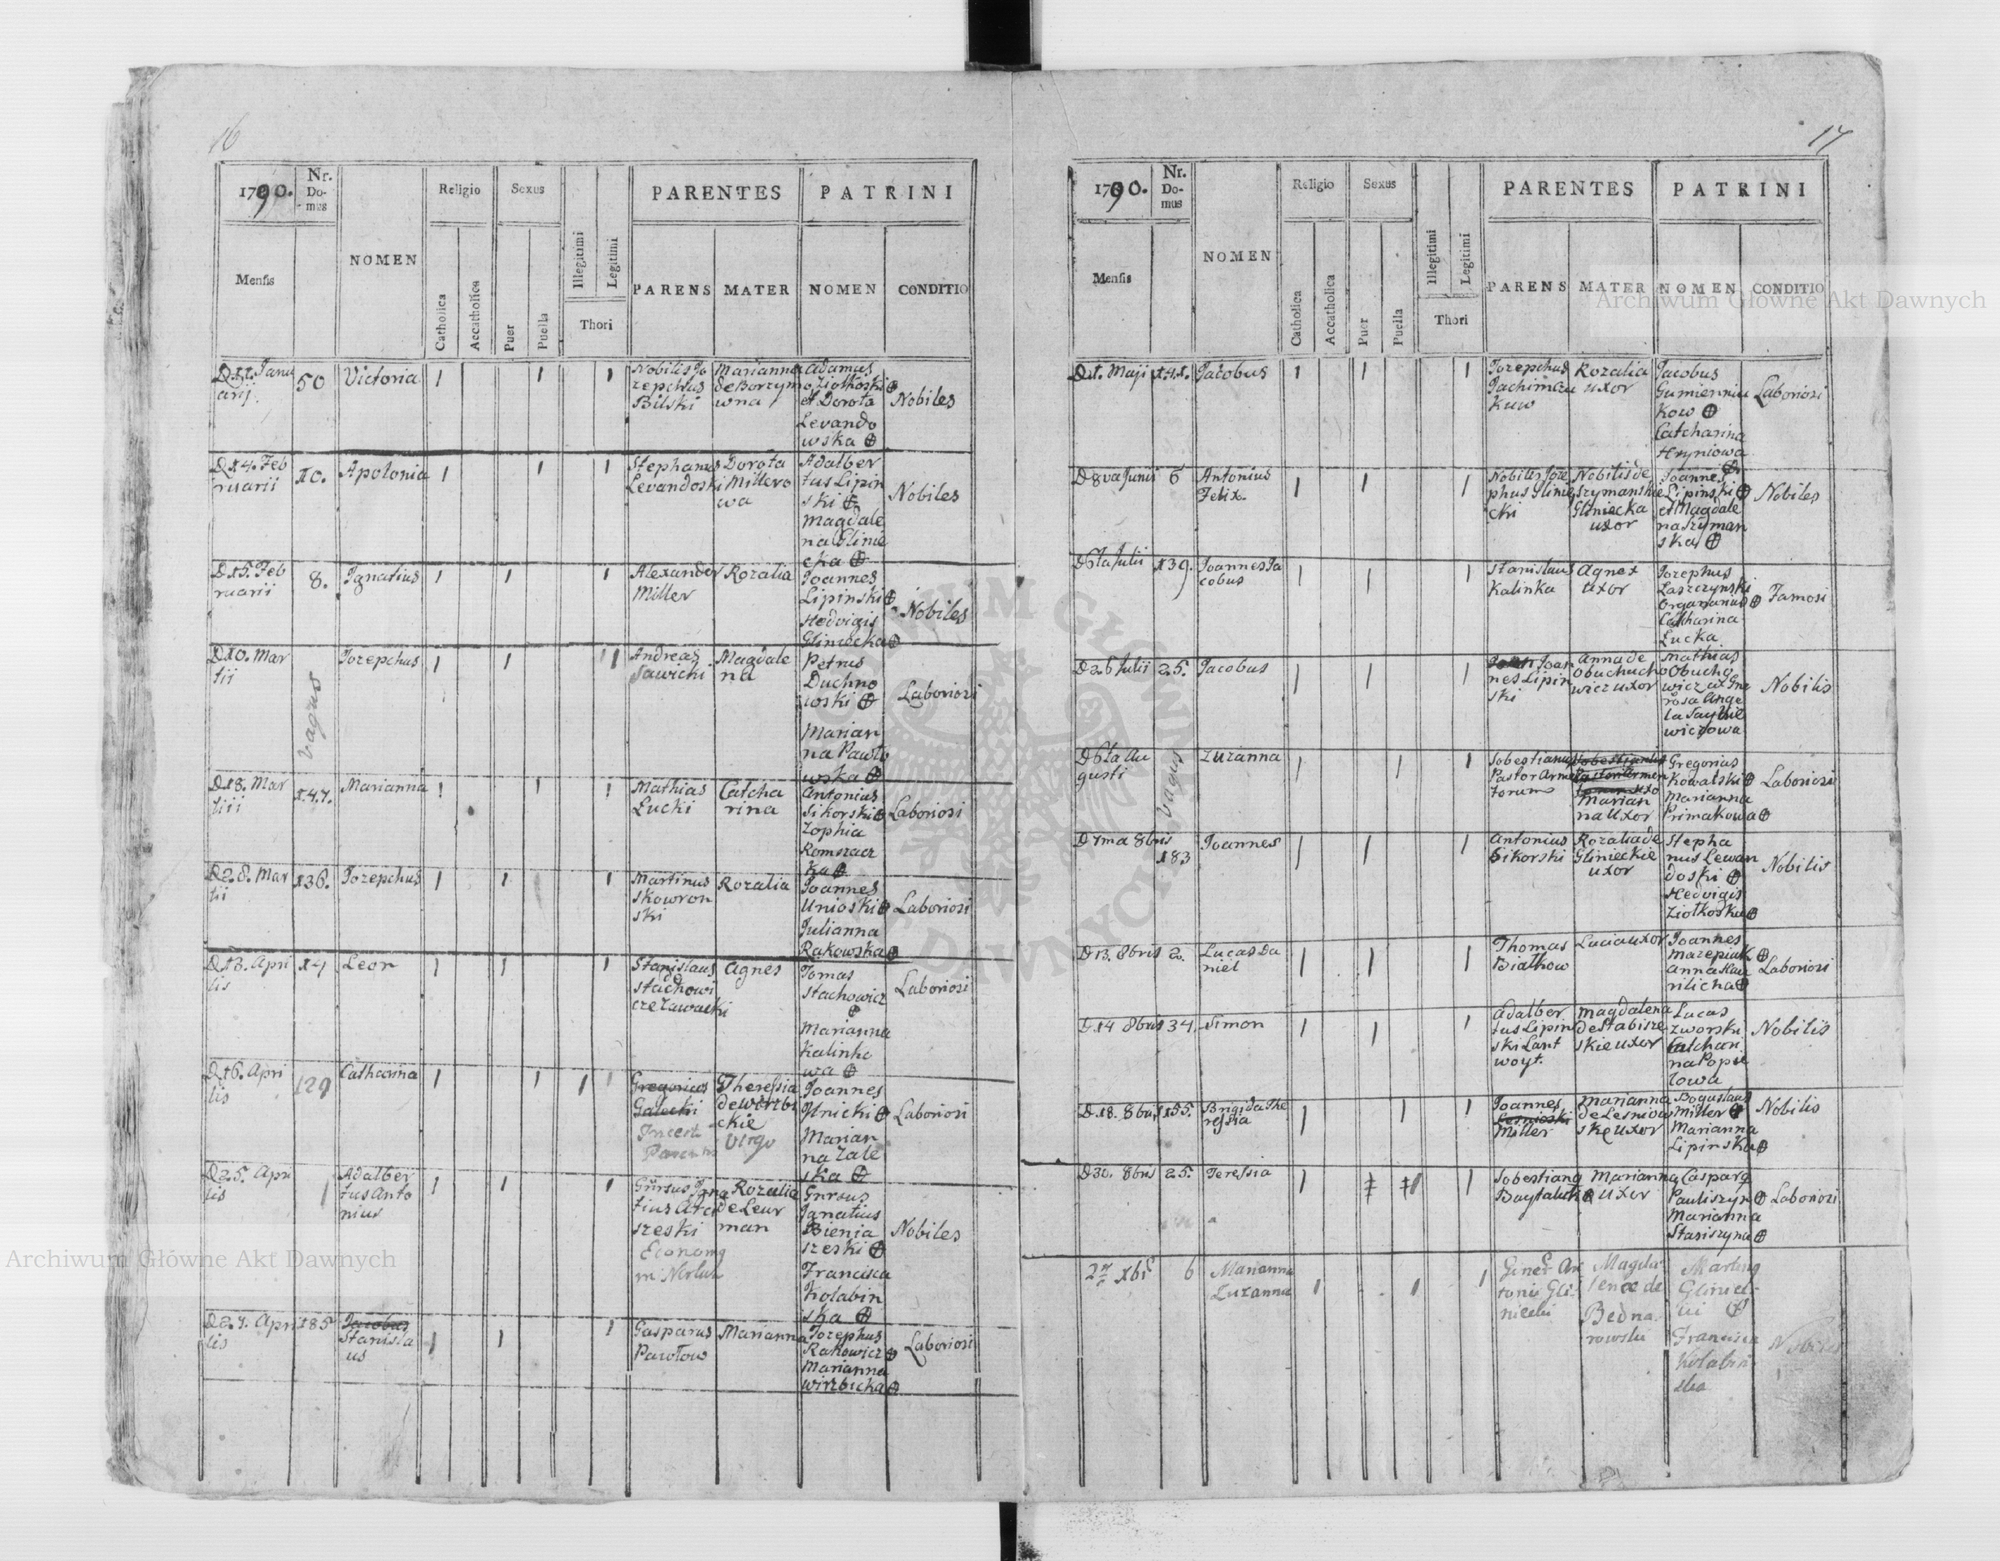 16
1790.
Nr. Domus
NOMEN
Religio
Sexus
PARENTES
PATRINI
Mensis
Catholica
Accatholica
Puer
Puella
Illegitimi
Legitimi
Thori
PARENS
MATER
NOMEN
CONDITIO
arij
50
Victoria
1
1
1
Nobilis Jo
zephus
Bilski
Marianna
de Borzym
owna
Adamus
Ziołkoski
et Dorota
Levando
wska
Nobiles
D14. Feb
ruarii
10.
Apolonia
1
1
1
Stephanus
Levandoski
Dorota
Millero
wa
Adalber
tus Lipin
ski
Magdale
na Glinie
cka
Nobiles
D15. Feb
ruarii
8.
Ignatius
1
1
1
Alexander
Miller
Rozalia
Joannes
Lipinski
Hedvigis
Gliniecka
Nobiles
D10. Mar
tii
vagus
Jozephus
1
1
1
Andreas
Sawicki
Magdale
na
Petrus
Duchno
wski
Marian
na Pawło
wska
Laboriosi
D18. Mar
tiii
147.
Marianna
1
1
1
Mathias
Łucki
Catha
rina
Antonius
Sikorski
Zophia
Romszacz
ka
Laboriosi
D28. Mar
tii
136.
Jozephus
1
1
1
Martinus
Skowron
ski
Rozalia
Joannes
Unioski
Julianna
Rakowska
Laboriosi
D13. Apri
lis
14
Leon
1
1
1
Stanislaus
Stachowi
cz
Agnes
Tomas
Stachowicz
Marianna
Kalinko
wa
Laboriosi
D16. Apri
lis
129
Catharina
1
1
1
Gregorius
Gałecki
Incert
Parens
Theressia
de Wirzbi
ckie
Virgo
Joannes
Ilnicki
Marian
na Zale
ska
Laboriosi
D25. Apri
lis
1
Adalber
tus Anto
nius
1
1
1
tius
szeski
Econom
Rozalia
de Leur
man
Ignatius
Bienia
szeski
Francisca
Kolabin
ska
Nobiles
D27. Apri
lis
185
Jacobus
Stanisla
us
1
1
1
Gasparus
Pawłow
Marianna
Jozephus
Rakowicz
Marianna
Wirzbicka
Laboriosi
17
1790.
Nr. Domus
NOMEN
Religio
Sexus
PARENTES
PATRINI
Mensis
Catholica
Accatholica
Puer
Puella
Illegitimi
Legitimi
Thori
PARENS
MATER
NOMEN
CONDITIO
D1. Maji
141.
Jacobus
1
1
1
Jozephus
Jachimczu
kuw
Rozalia
uxor
Jacobus
Gumienniu
kow
Catharina
Hryniowa
Laboriosi
D8va Junii
6
Antonius
Felix
1
1
1
Nobilis Joze
phus Glinie
cki
Nobilis de
Szymanskie
Gliniecka
uxor
Joannes
Lipinski
et Magdale
na Szyman
ska
Nobiles
D6ta Julii
139.
Joannes Ja
cobus
1
1
1
Stanislaus
Kalinka
Agnex
uxor
Jozephus
Laszczynski
Organarius
Catharina
Łucka
Famosi
D26 Julii
25.
Jacobus
1
1
1
Joan
nes Lipin
ski
Anna de
Obuchucho
wicz uxor
Mathias
Obucho
wicz et Gne
rosa Ange
la
wiczowa
Nobilis
D6ta Au
gusti
vagus
Zuzanna
1
1
1
Sobestianus
Pastor Arme
torum
Marian
na uxor
Gregorius
Kowalski
Marianna
Primakowa
Laboriosi
D7ma 8bris
183
Joannes
1
1
1
Antonius
Sikorski
Rozalia de
Glinieckie
uxor
Stepha
nus Lewan
doski
Hedvigis
Ziołkoska
Nobilis
D13. 8bris
2.
Lucas Da
niel
1
1
1
Thomas
Białkow
Lucia uxor
Joannes
Mazepiuk
Anna Kau
rilicha
Laboriosi
D14 8bris
34.
Simon
1
1
1
Adalber
tus Lipin
ski Lant
woyt.
Magdalena
de Stabisze
skie uxor
Lucas
Zworski
Cathari
na Popie
lowa
Nobilis
D18. 8bris
155.
Brigida The
ressia
1
1
1
Joannes
Lesnioski
Miller
Marianna
de Lesniow
skie uxor
Boguslaus
Miller
Marianna
Lipinska
Nobilis
D30. 8bris
25.
Teressia
1
1
1
Sobestianus
Marianna
uxor
Casparg
Pauliszyn
Marianna
Stasiszyna
Laboriosi
6
Marianna
Zuzanna
1
1
1
Gener An
tonii Gli
niecki
Magda
lenæ de
Bedna
rowski
Marting
Gliniec
ki
Francisca
Kolabin
ska
Nobiles
Archiwum Główne Akt Dawnych
Archiwum Główne Akt Dawnych
ARCHIWUM GŁÓWNE AKT DAWNYCH